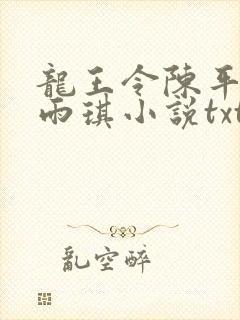 龍王令陳平
雨琪小說txt
亂空醉